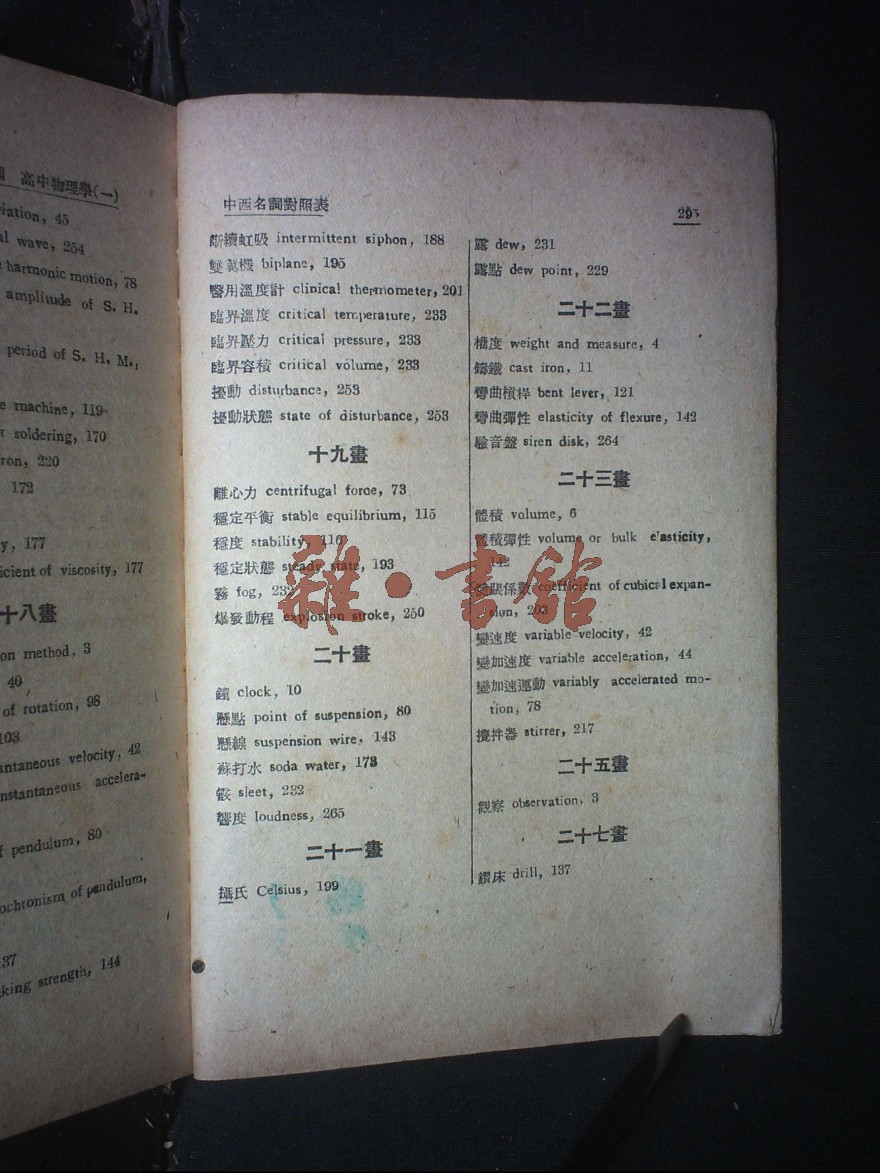 高中物理學(一)
iation, 45
al wave, 254
harmonic motion, 78
amplitude of S. H.
period of S. H. M.,
e machine, 119
r soldering, 170
ron, 220
172
y, 177
icient of viscosity, 177
十八畫
on method, 3
40
of rotation, 98
103
antaneous velocity, 42
nstantaneous accelera-
f pendulum, 80
ochronism of pendulum,
37
king strength, 144
中西名詞對照表
295
斷續虹吸 intermittent siphon, 188
雙翼機 biplane, 195
醫用溫度計 clinical thermometer, 201
臨界溫度 critical temperature, 233
臨界壓力 critical pressure, 233
臨界容積 critical volume, 233
擾動 disturbance, 253
擾動狀態 state of disturbance, 253
十九畫
離心力 centrifugal force, 73
穩定平衡 stable equilibrium, 115
穩度 stability, 116
穩定狀態 steady state, 193
霧 fog, 232
爆發動程 explosion stroke, 250
二十畫
鐘 clock, 10
懸點 point of suspension, 80
懸線 suspension wire, 143
蘇打水 soda water, 173
sleet, 232
響度 loudness, 265
二十一畫
攝氏 Celsius, 199
露 dew, 231
露點 dew point, 229
二十二畫
權度 weight and measure, 4
鑄鐵 cast iron, 11
彎曲槓桿 bent lever, 121
彎曲彈性 elasticity of flexure, 142
驗音盤 siren disk, 264
二十三畫
體積 volume, 6
體積彈性 volume or bulk elasticity,
142
係數 coefficient of cubical expan-
sion, 203
變速度 variable velocity, 42
變加速度 variable acceleration, 44
變加速運動 variably accelerated mo-
tion, 78
攪拌器 stirrer, 217
二十五畫
觀察 observation, 3
二十七畫
鑽床 drill, 137
雜·書館